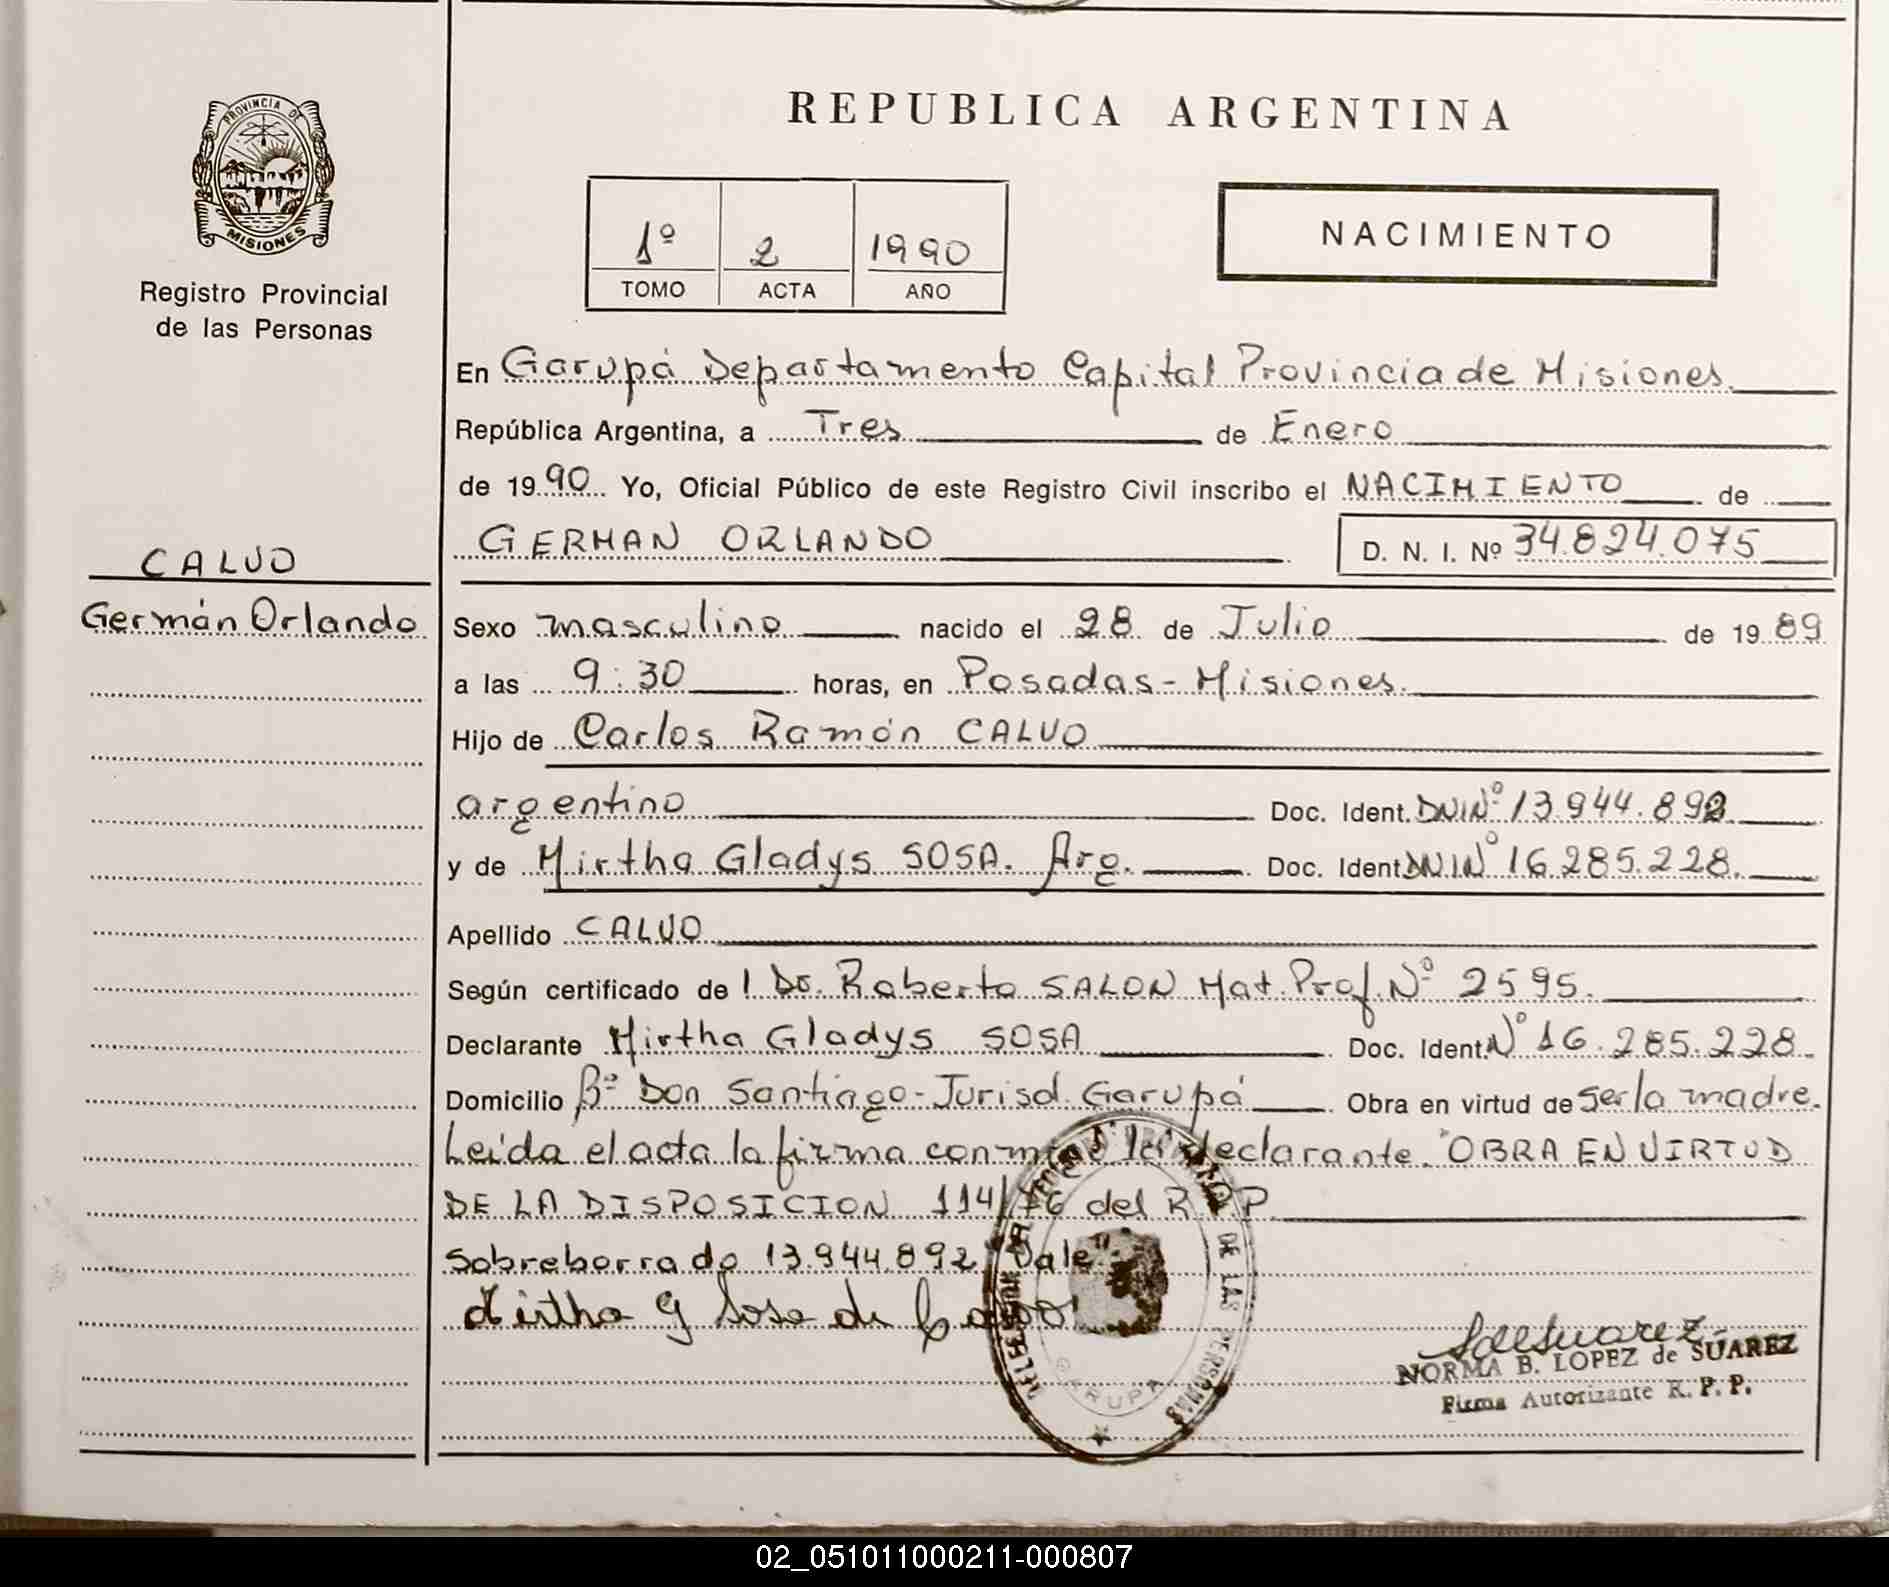 PROVINCIA DE
MISIONES
Registro Provincial
de las Personas
CALVO
Germán Orlando
REPUBLICA ARGENTINA
1º 2 1990
TOMO ACTA AÑO
NACIMIENTO
En Garupá Departamento Capital Provincia de Misiones.
República Argentina, a Tres de Enero
de 1990 Yo, Oficial Público de este Registro Civil inscribo el NACIMIENTO de
GERMAN ORLANDO D. N. I. Nº 34.824.075
Sexo masculino nacido el 28 de Julio de 1989
a las 9:30 horas, en Posadas - Misiones.
Hijo de Carlos Ramón CALVO
argentino Doc. Ident. DNI Nº 13.944.892
y de Mirtha Gladys SOSA. Arg. Doc. Ident DNI Nº 16.285.228.
Apellido CALVO
Según certificado de l Dr. Roberto SALON Mat. Prof. Nº 2595.
Declarante Mirtha Gladys SOSA Doc. Ident. Nº 16.285.228.
Domicilio Bº Don Santiago - Jurisd. Garupá Obra en virtud de ser la madre.
Leída el acta la firma conmigo la declarante. "OBRA EN VIRTUD
DE LA DISPOSICION 114/76 del R.P.P.
Sobreborrado 13.944.892 "Vale"
Mirtha G Sosa de Calvo
DE LAS PERSONAS
GARUPA
SdeSuarez
NORMA B. LOPEZ de SUAREZ
Firma Autorizante R. P. P.
02_051011000211-000807